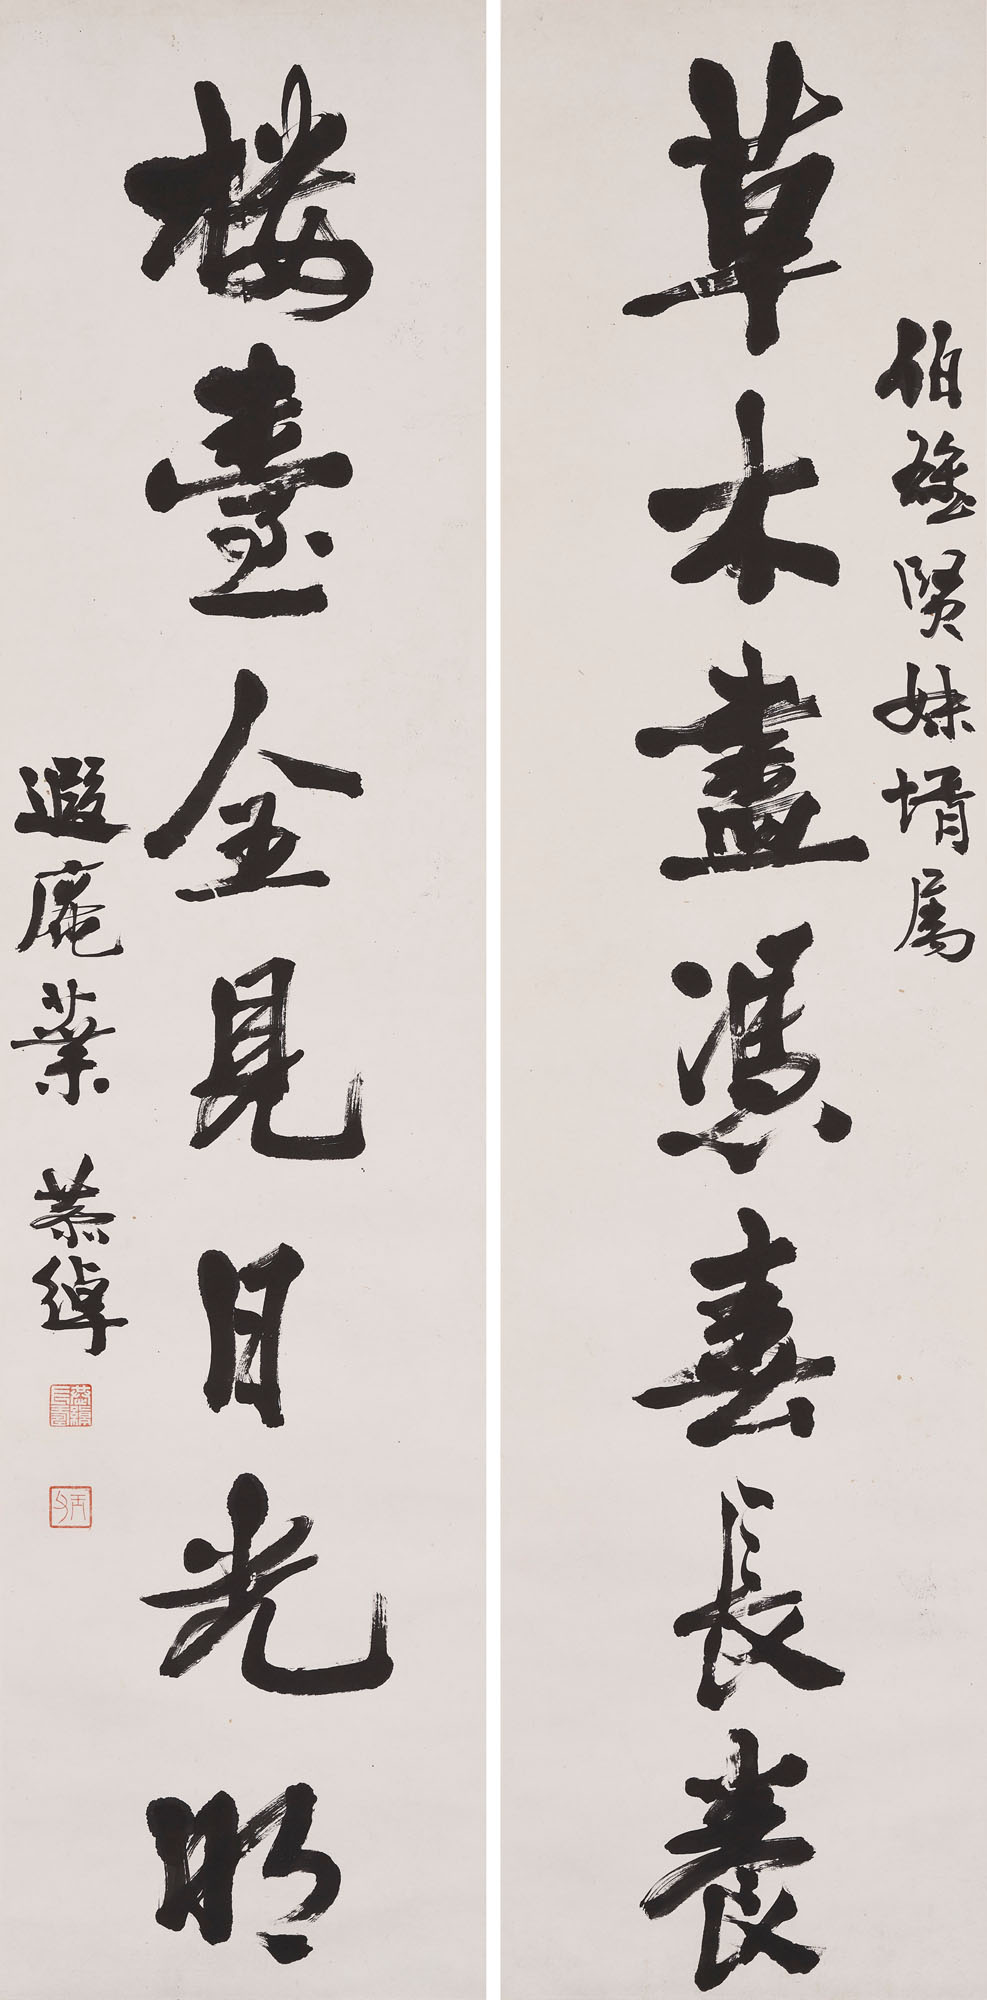 草木盡憑春長養
伯 賢妹壻属
樓臺全見日光明
遐庵葉恭綽